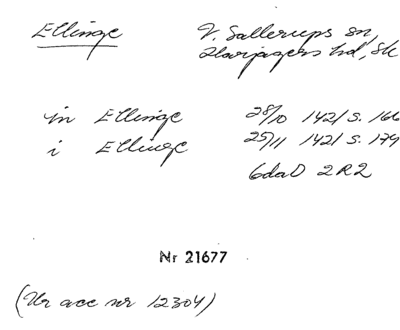 Ellinge V. Sallerups sn,
Harjagers hd, Sk
in Ellinge 28/10 1421 S. 166
i Ellinge 25/11 1421 S. 179
6daD 2R2
Nr 21677
(Ur acc nr 12304)